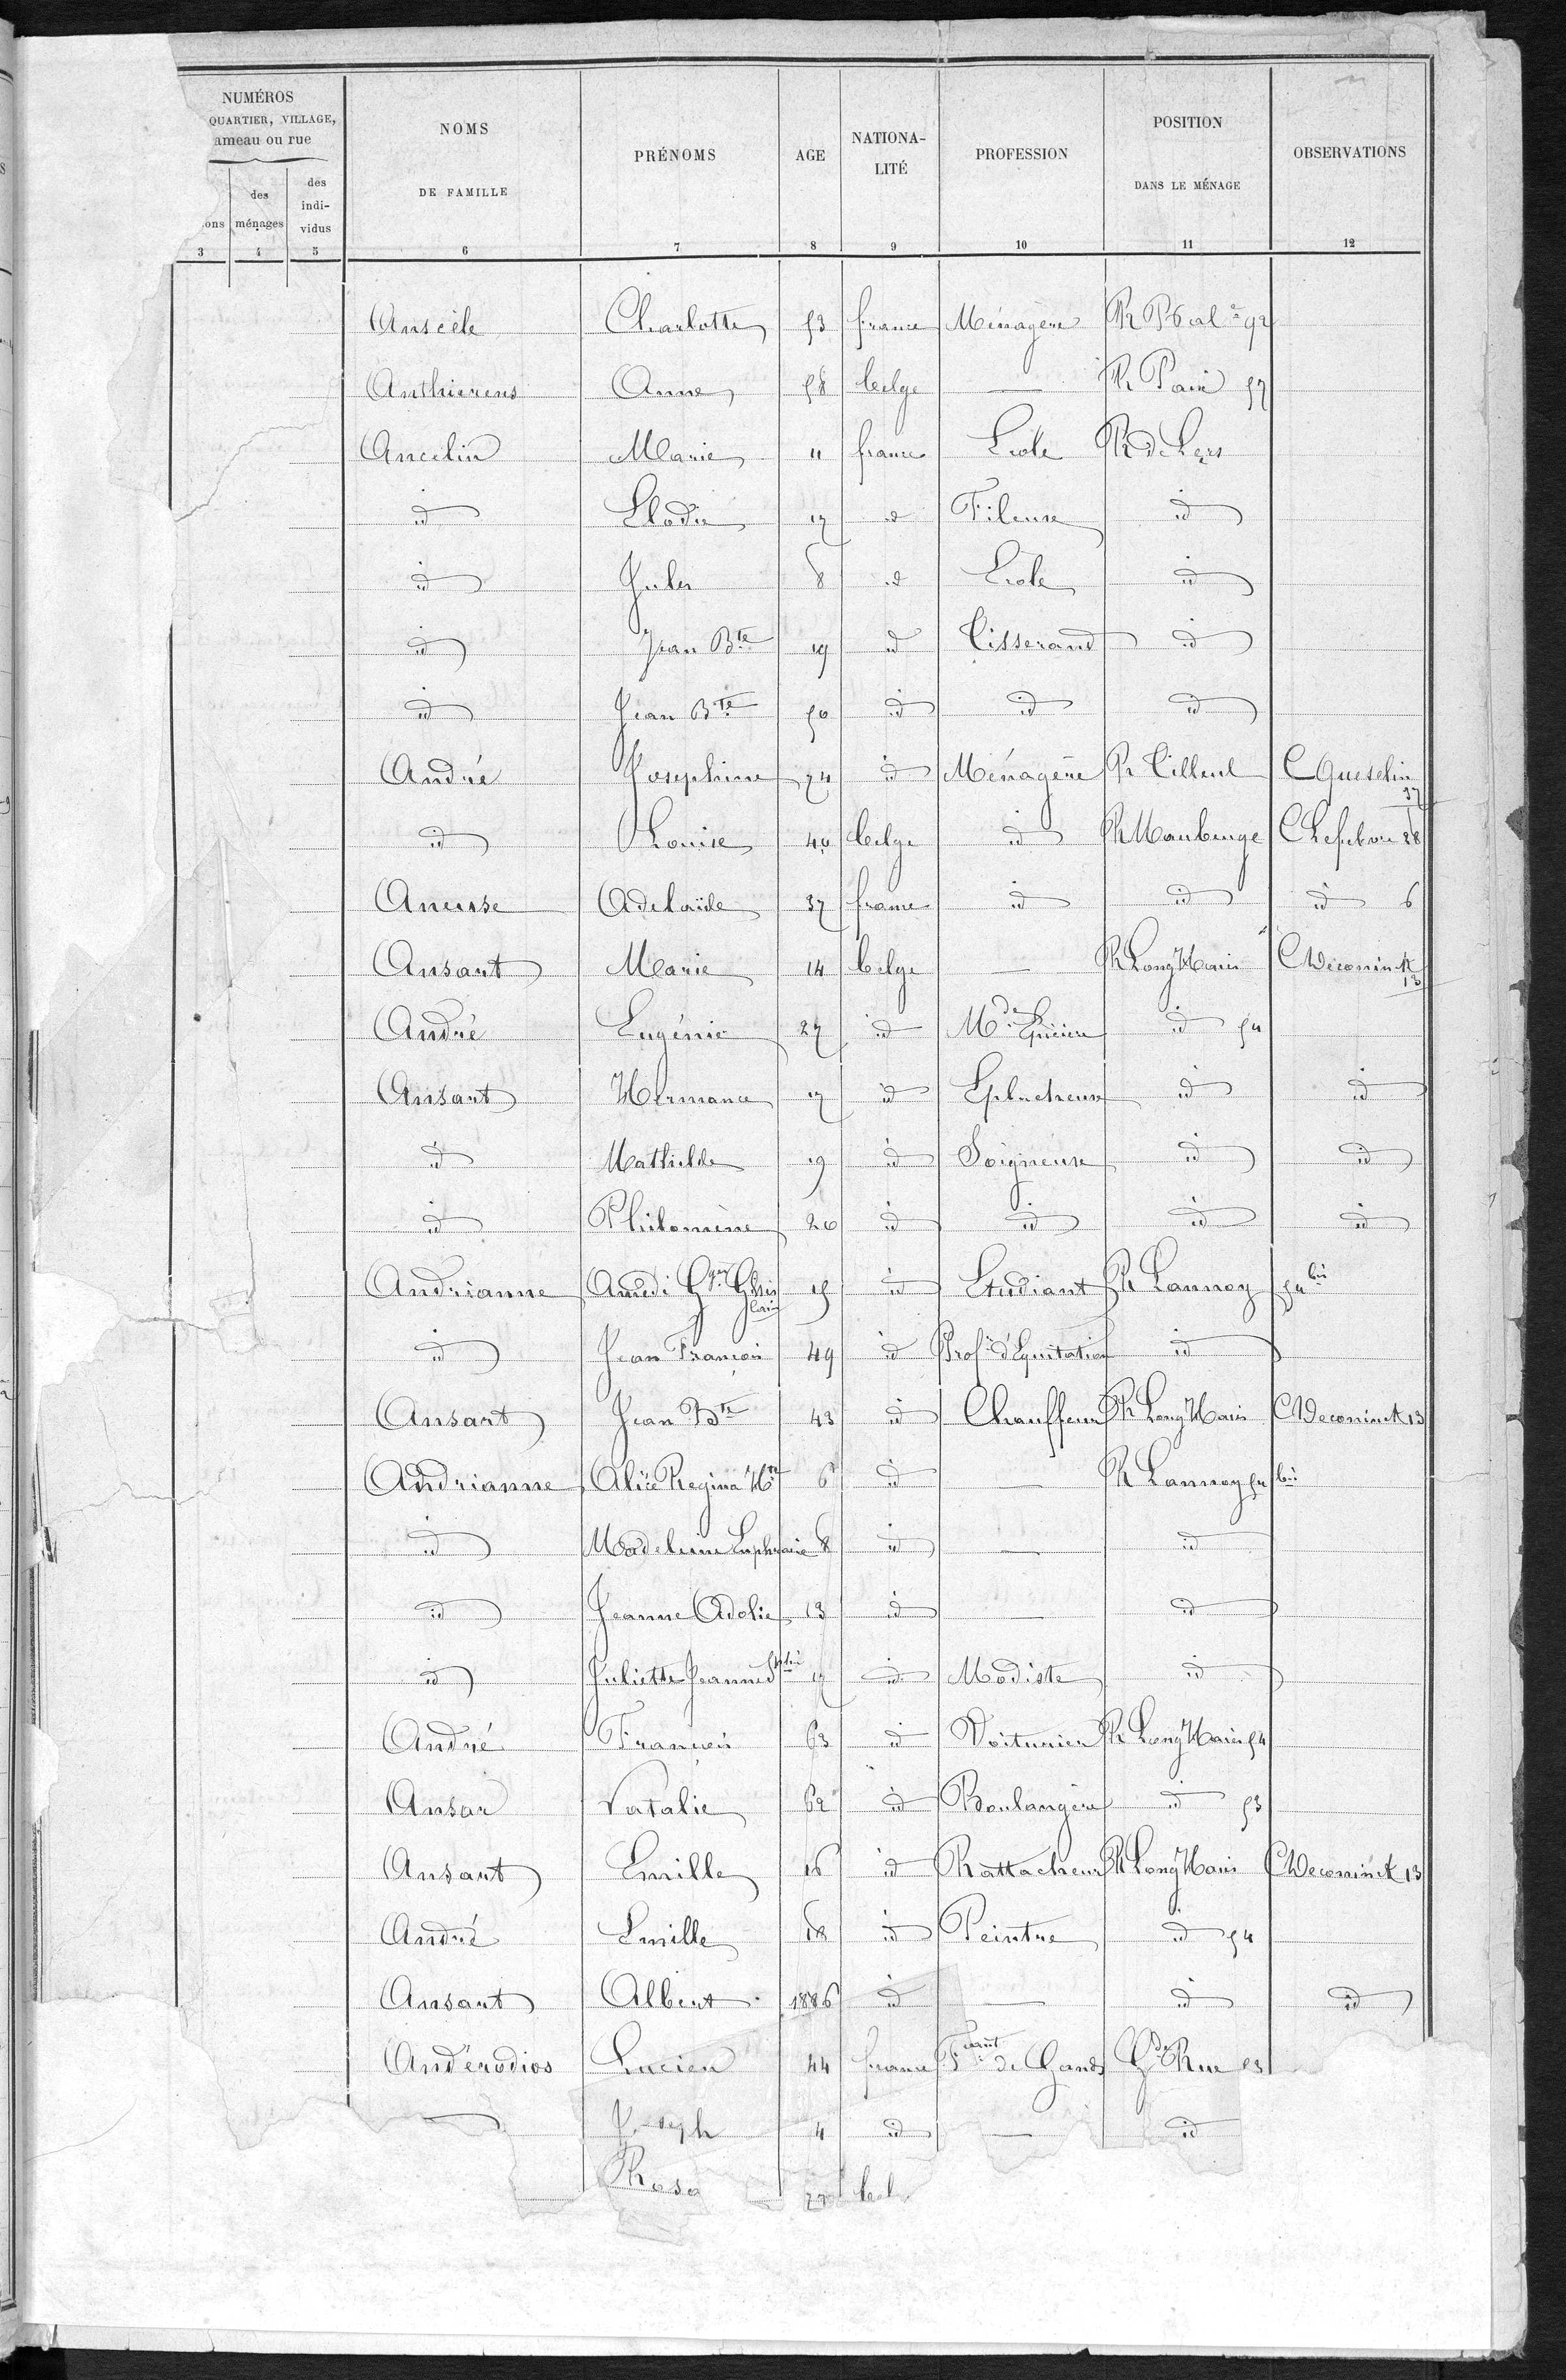 NUMÉROS
QUARTIER, VILLAGE,
ameau ou rue
ons
des ménages
des indi-vidus
NOMS DE FAMILLE
PRÉNOMS
AGE
NATIONA-LITÉ
PROFESSION
POSITION DANS LE MÉNAGE
OBSERVATIONS
3 4 5 6 7 8 9 10 11 12
Anscèle Charlotte 53 france Ménagère
Anthierens Anne 58 belge — R Pain 57
Ancelin Marie 11 france Ecole R de Lers
id Elodie 17 id Fileuse id
id Jules 8 id Ecole id
id Jean Bte 19 id Tisserand id
id Jean Bte 50 id id id
André Josephine 74 id Ménagère R Tilleul C Queselin 37
id Louise 40 belge id R Maubeuge C Lefebvre 28
Aneusse Adelaïde 37 france id id id 6
Ansart Marie 14 belge — R Long Haies C Deconinck 13
André Eugénie 27 id Mde Epicière id 54
Ansart Hermance 17 id Eplucheuse id id
id Mathilde 19 id Soigneuse id id
id Philomène 20 id id id id
Andrianne Amédi 15 id Etudiant R Lannoy 54 bis
id Jean François 49 id Profr d'Equitation id
Ansart Jean Bte 43 id Chauffeur R Long Haies C Deconinck 13
Andrianne Alice Regina 6 id — R Lannoy 54 bis
id Madeleine Euphrasie 8 id — id
id Jeanne Adolie 13 id — id
id Juliette Jeanne 17 id Modiste id
André François 63 id Voiturier R Long Haies 54
Ansar Natalie 62 id Boulangère id 53
Ansart Emille 16 id Rattacheur R Long Haies C Deconinck 13
André Emille 18 id Peintre id 54
Ansart Albert 1886 id — id id
Andérodios Lucien 44 france Fcant de Gands Gde Rue 53
Joseph 4 id — id
Rosa 27 bel